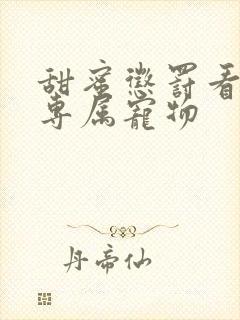 甜蜜懲罰看
專属寵物
丹帝仙